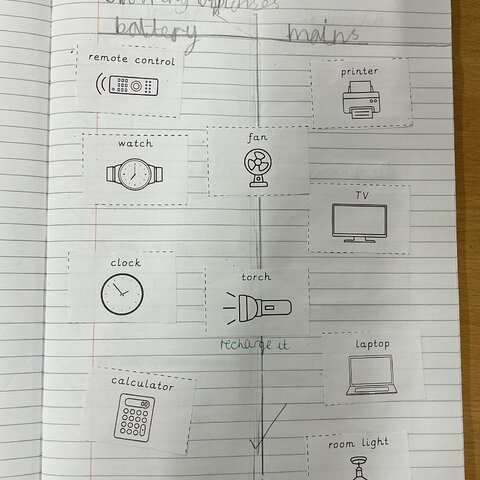 battery mains
remote control
printer
watch
fan
TV
clock
torch
recharge it
laptop
calculator
room light